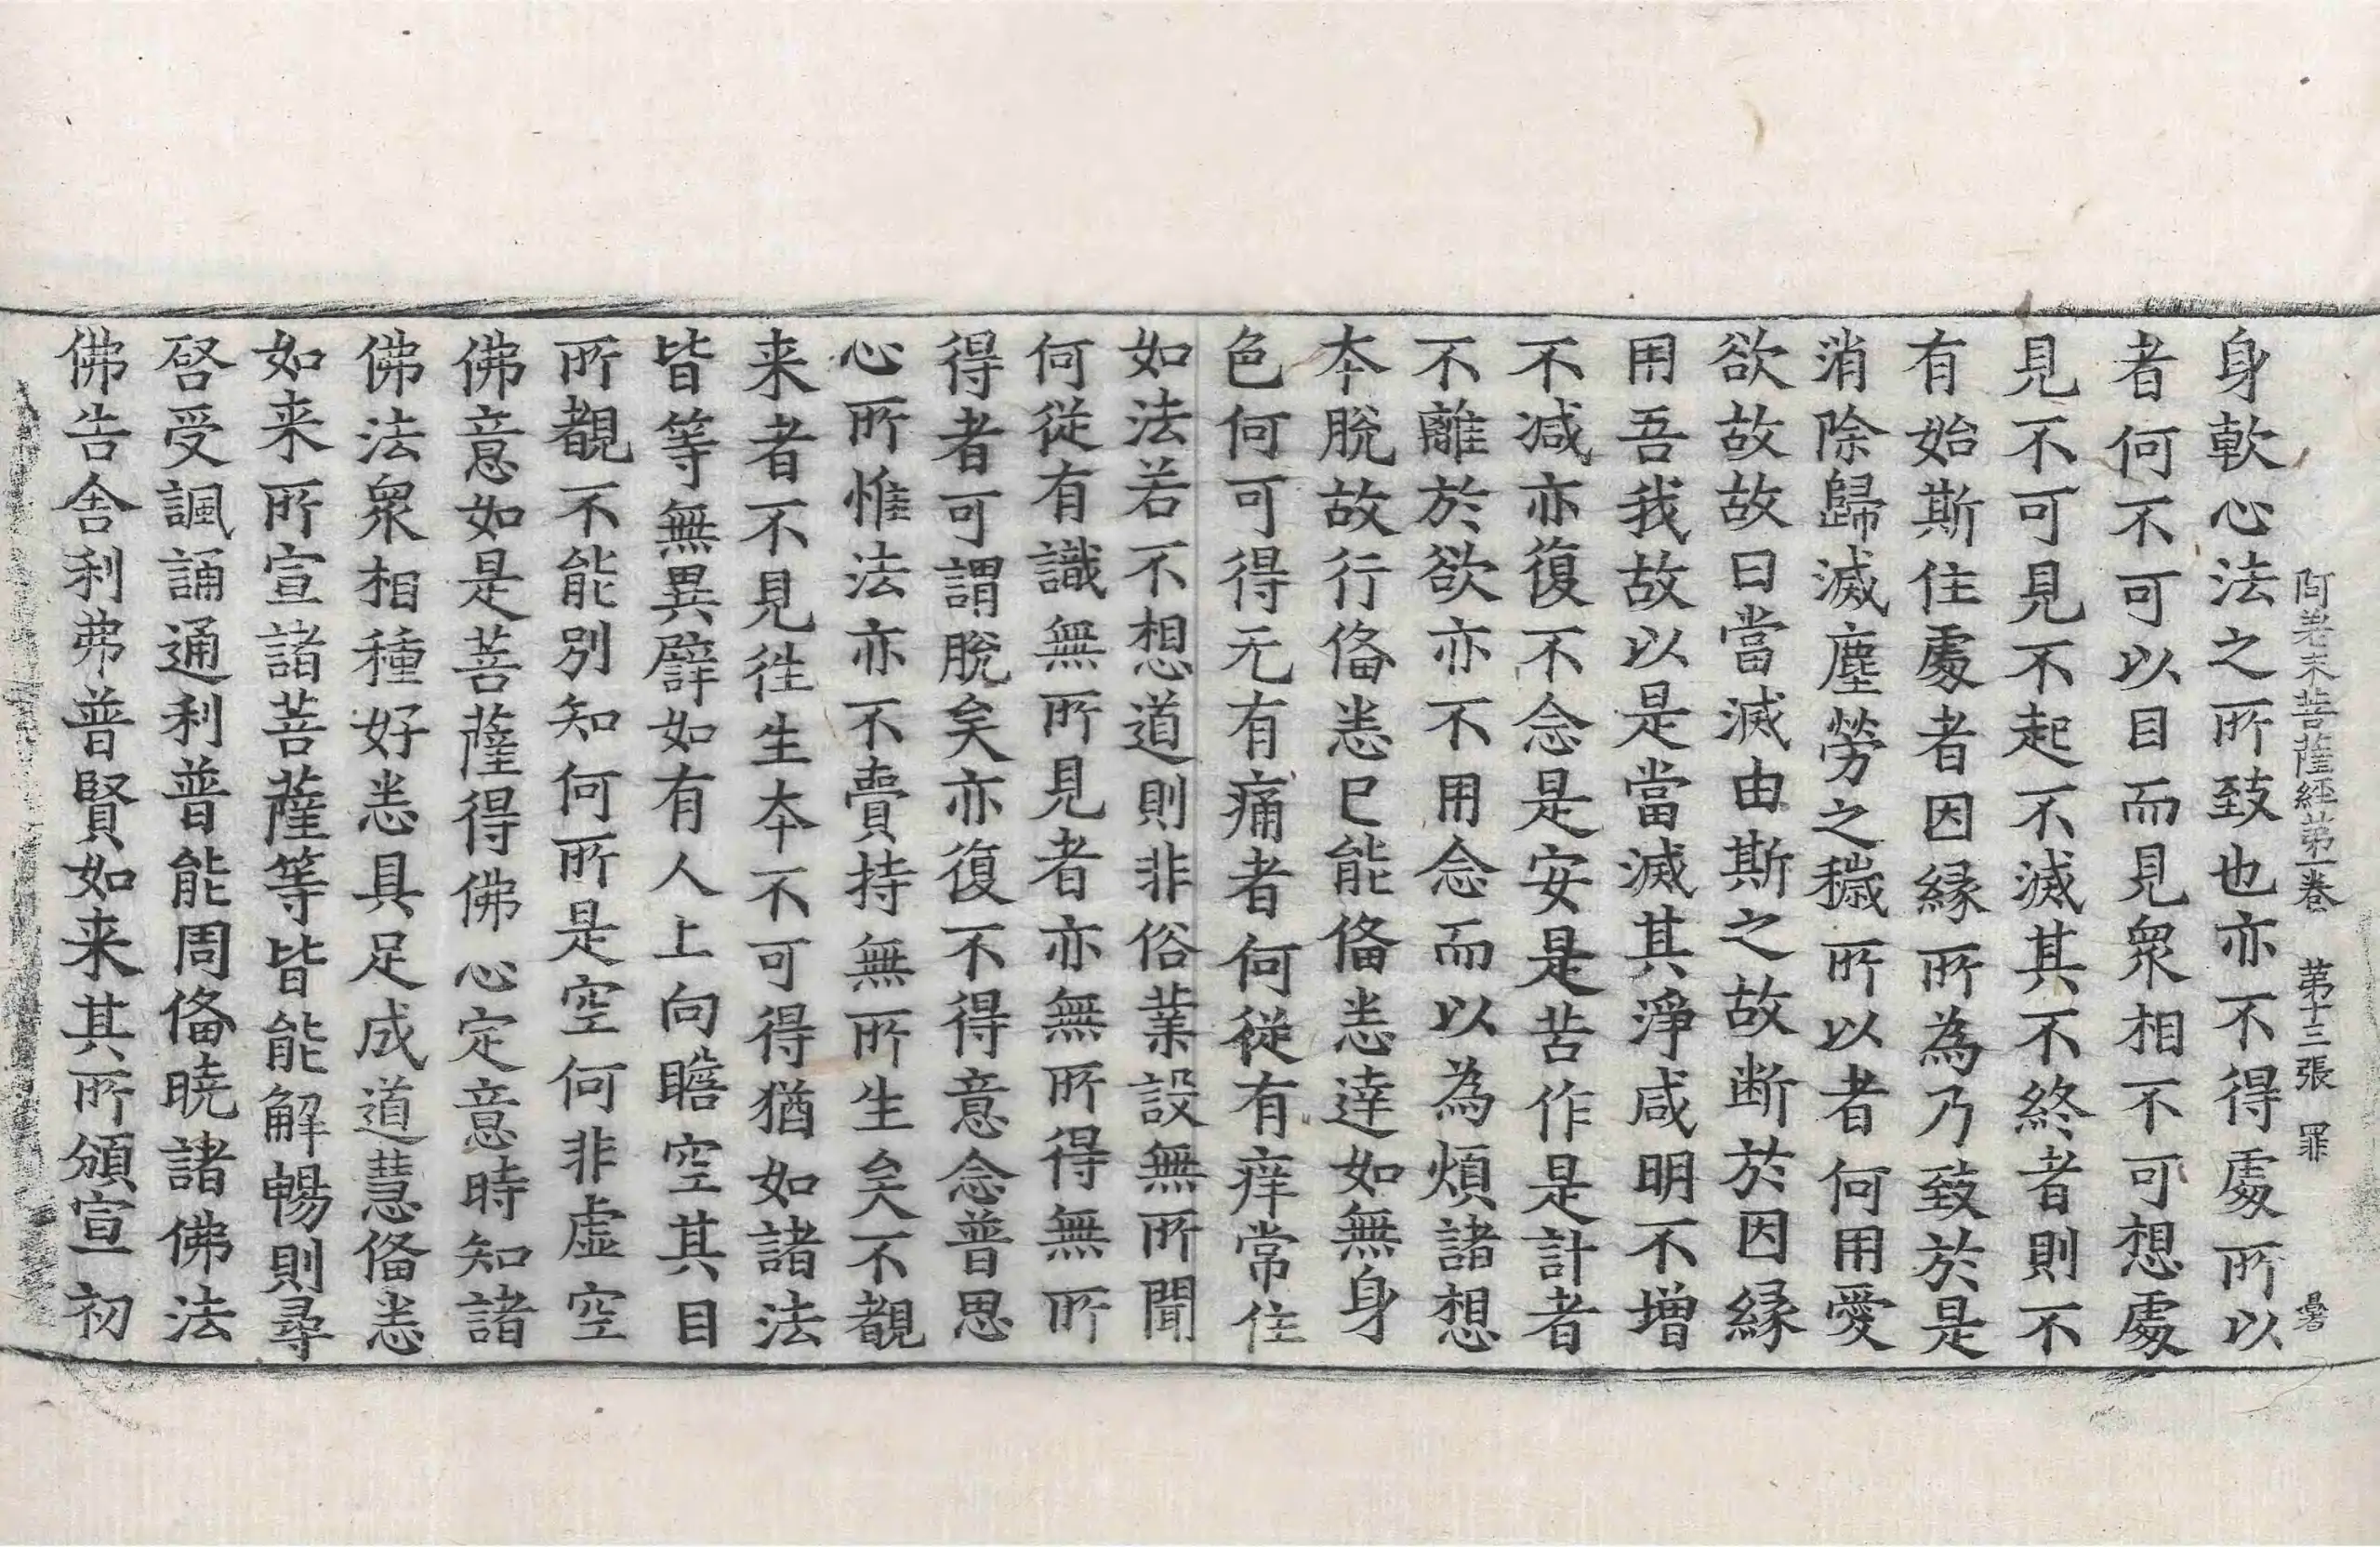 阿差末菩薩經第一卷　第十三張　罪　暑
身軟心法之所致也亦不得處所以
者何不可以目而見衆相不可想處
見不可見不起不滅其不終者則不
有始斯住處者因縁所為乃致於是
消除歸滅塵勞之穢所以者何用愛
欲故故曰當滅由斯之故断於因縁
用吾我故以是當滅其淨咸明不增
不減亦復不念是安是苦作是計者
不離於欲亦不用念而以為煩諸想
本脫故行俻悉已能俻悉達如無身
色何可得无有痛者何從有痒常住
如法若不想道則非俗業設無所聞
何從有識無所見者亦無所得無所
得者可謂脫矣亦復不得意念普思
心所惟法亦不賣持無所生矣不覩
来者不見徃生本不可得猶如諸法
皆等無異辟如有人上向瞻空其目
所覩不能別知何所是空何非虛空
佛意如是菩薩得佛心定意時知諸
佛法衆相種好悉具足成道慧俻悉
如来所宣諸菩薩等皆能解暢則尋
啓受諷誦通利普能周俻曉諸佛法
佛告舍利弗普賢如来其所頒宣初